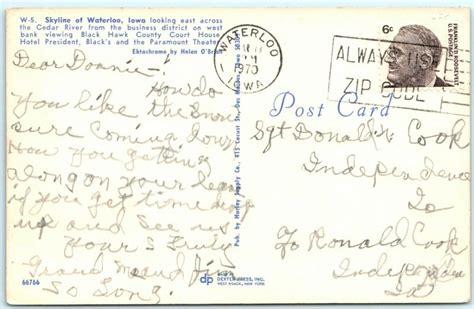 W-5. Skyline of Waterloo, Iowa looking east across
the Cedar River from the business district on west
bank viewing Black Hawk County Court House
Hotel President, Black's and the Paramount Theater
Ektachrome by Helen O'Brien
Dear Donnie!
How do
you like the snow
sure coming down
How you getting
along on your leave
if you get time
up and see us
Yours Truly
Grand
So Long.
Pub. by Harvey Supply Co., 415 Locust St., Des Moines, Iowa
WATERLOO
PM
1970
IOWA
ALWAYS USE
ZIP CODE
6c
FRANKLIN D. ROOSEVELT
U.S. POSTAGE
Post Card
Sgt Donald Cook
Independence
Ia
To Ronald Cook
Independence
Ia
dp
DEXTER PRESS, INC.
WEST NYACK, NEW YORK
66766